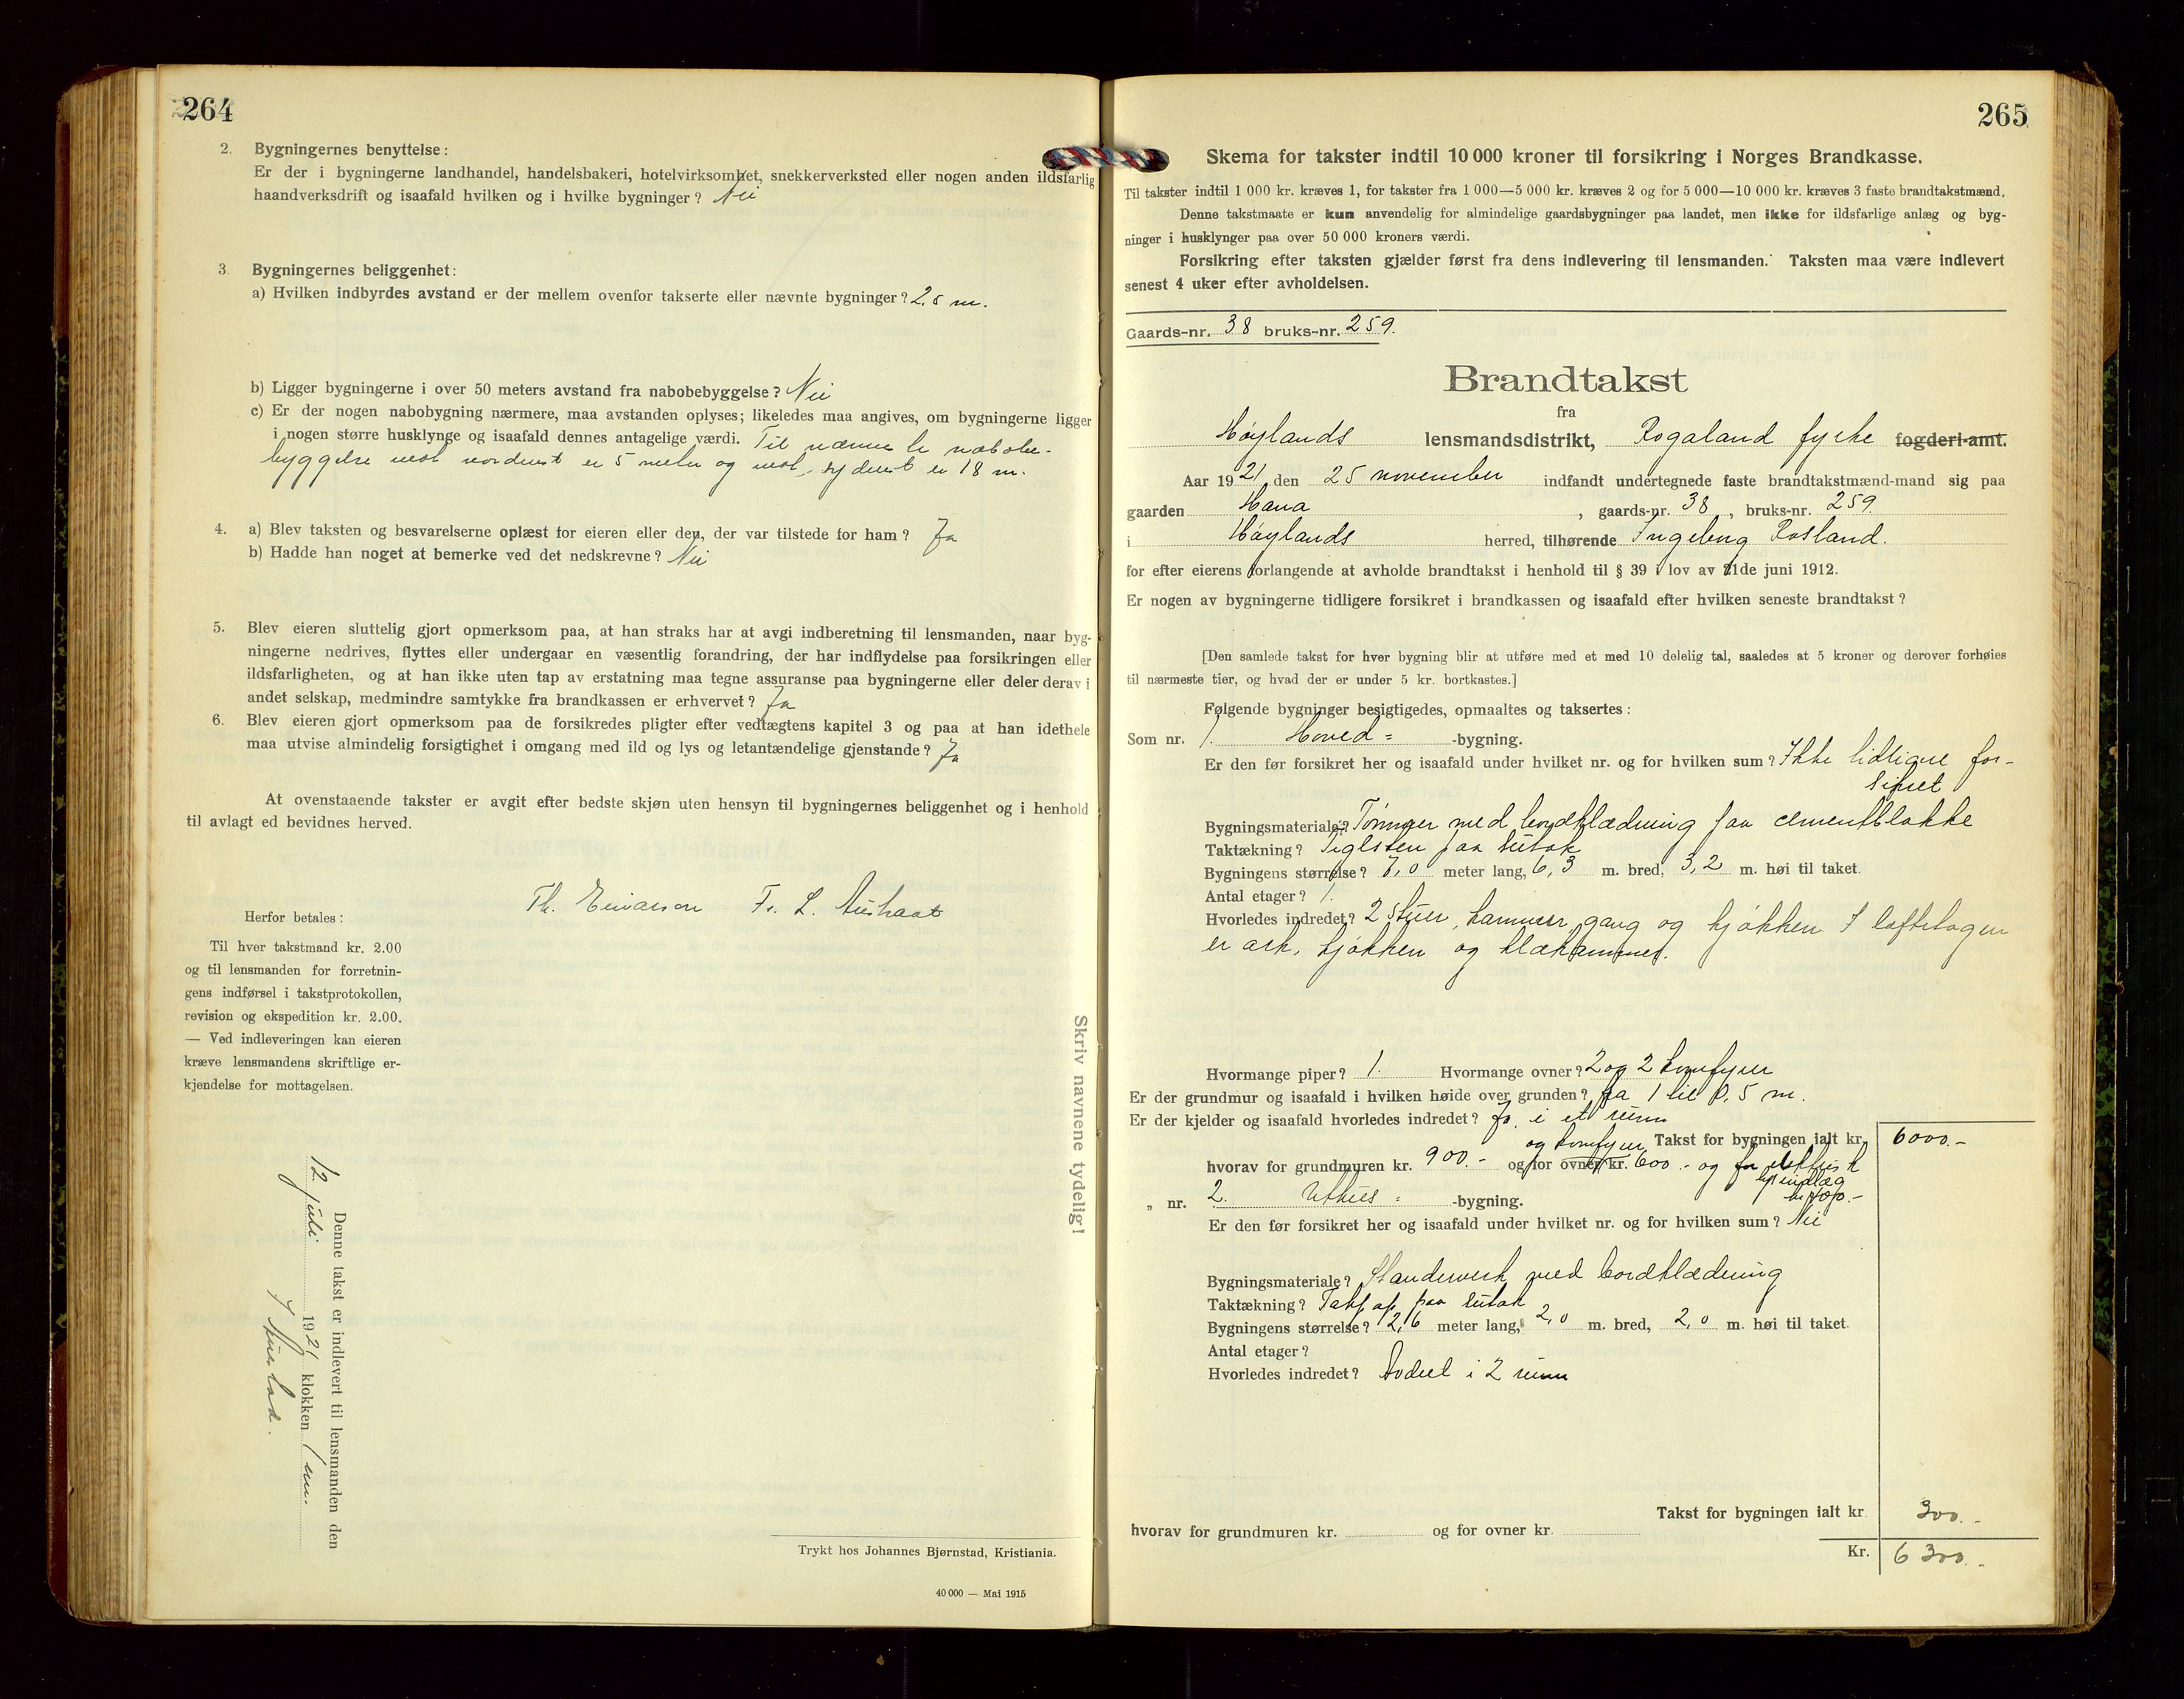 264
2. Bygningernes benyttelse:
Er der i bygningerne landhandel, handelsbakeri, hotelvirksomhet, snekkerverksted eller nogen anden ildsfarlig
haandverksdrift og isaafald hvilken og i hvilke bygninger? Nei
3. Bygningernes beliggenhet:
a) Hvilken indbyrdes avstand er der mellem ovenfor takserte eller nævnte bygninger? 2,5 m.
b) Ligger bygningerne i over 50 meters avstand fra nabobebyggelse? Nei
c) Er der nogen nabobygning nærmere, maa avstanden oplyses; likeledes maa angives, om bygningerne ligger
i nogen større husklynge og isaafald dennes antagelige værdi. Til nærmeste nabobe-
byggelse mot nordvest er 5 meter og mot sydvest er 18 m.
4. a) Blev taksten og besvarelserne oplæst for eieren eller den, der var tilstede for ham? Ja
b) Hadde han noget at bemerke ved det nedskrevne? Nei
5. Blev eieren sluttelig gjort opmerksom paa, at han straks har at avgi indberetning til lensmanden, naar byg-
ningerne nedrives, flyttes eller undergaar en væsentlig forandring, der har indflydelse paa forsikringen eller
ildsfarligheten, og at han ikke uten tap av erstatning maa tegne assuranse paa bygningerne eller deler derav i
andet selskap, medmindre samtykke fra brandkassen er erhvervet? Ja
6. Blev eieren gjort opmerksom paa de forsikredes pligter efter vedtægtens kapitel 3 og paa at han idethele
maa utvise almindelig forsigtighet i omgang med ild og lys og letantændelige gjenstande? Ja
At ovenstaaende takster er avgit efter bedste skjøn uten hensyn til bygningernes beliggenhet og i henhold
til avlagt ed bevidnes herved.
Th. Fr. L.
Herfor betales:
Til hver takstmand kr. 2.00
og til lensmanden for forretnin-
gens indførsel i takstprotokollen,
revision og ekspedition kr. 2.00.
— Ved indleveringen kan eieren
kræve lensmandens skriftlige er-
kjendelse for mottagelsen.
Skriv navnene tydelig!
Denne takst er indlevert til lensmanden den
12 juli 1921 klokken 1 em.
Trykt hos Johannes Bjørnstad, Kristiania.
40 000 — Mai 1915
265
Skema for takster indtil 10 000 kroner til forsikring i Norges Brandkasse.
Til takster indtil 1 000 kr. kræves 1, for takster fra 1 000—5 000 kr. kræves 2 og for 5 000—10 000 kr. kræves 3 faste brandtakstmænd.
Denne takstmaate er kun anvendelig for almindelige gaardsbygninger paa landet, men ikke for ildsfarlige anlæg og byg-
ninger i husklynger paa over 50 000 kroners værdi.
Forsikring efter taksten gjælder først fra dens indlevering til lensmanden. Taksten maa være indlevert
senest 4 uker efter avholdelsen.
Gaards-nr. 38 bruks-nr. 259.
Brandtakst
fra
Høylands lensmandsdistrikt, Rogaland fylke fogderi-amt.
Aar 1921 den 25 november indfandt undertegnede faste brandtakstmænd-mand sig paa
gaarden Hana, gaards-nr. 38, bruks-nr. 259
i Høylands herred, tilhørende Ingeborg Rosland.
for efter eierens forlangende at avholde brandtakst i henhold til § 39 i lov av 21de juni 1912.
Er nogen av bygningerne tidligere forsikret i brandkassen og isaafald efter hvilken seneste brandtakst?
[Den samlede takst for hver bygning blir at utføre med et med 10 delelig tal, saaledes at 5 kroner og derover forhøies
til nærmeste tier, og hvad der er under 5 kr. bortkastes.]
Følgende bygninger besigtigedes, opmaaltes og taksertes:
Som nr. 1. Hoved= -bygning.
Er den før forsikret her og isaafald under hvilket nr. og for hvilken sum? Ikke tidligere for-
sikret
Bygningsmateriale? Tømmer med bordklædning paa cementblokke
Taktækning? Teglsten paa sutak
Bygningens størrelse? 7,0 meter lang, 6,3 m. bred, 3,2 m. høi til taket.
Antal etager? 1.
Hvorledes indredet? 2 stuer, kammer, gang og kjøkken. I loftetagen
er ark, kjøkken og klækammer.
Hvormange piper? 1. Hvormange ovner? 2 og 2 komfyrer
Er der grundmur og isaafald i hvilken høide over grunden? fra 1 til 0,5 m.
Er der kjelder og isaafald hvorledes indredet? Ja, i et rum
og komfyrer Takst for bygningen ialt kr. 6000.-
hvorav for grundmuren kr. 900.- og for ovner kr. 600.- og for elektrisk
lysindlæg
„ nr. 2. Uthus= -bygning.
Er den før forsikret her og isaafald under hvilket nr. og for hvilken sum? Nei
Bygningsmateriale? Standerverk med bordklædning
Taktækning? Takpap paa sutak
Bygningens størrelse? 2,6 meter lang, 2,0 m. bred, 2,0 m. høi til taket.
Antal etager?
Hvorledes indredet? Avdeel i 2 rum
Takst for bygningen ialt kr. 300.-
hvorav for grundmuren kr. og for ovner kr.
Kr. 6300.-